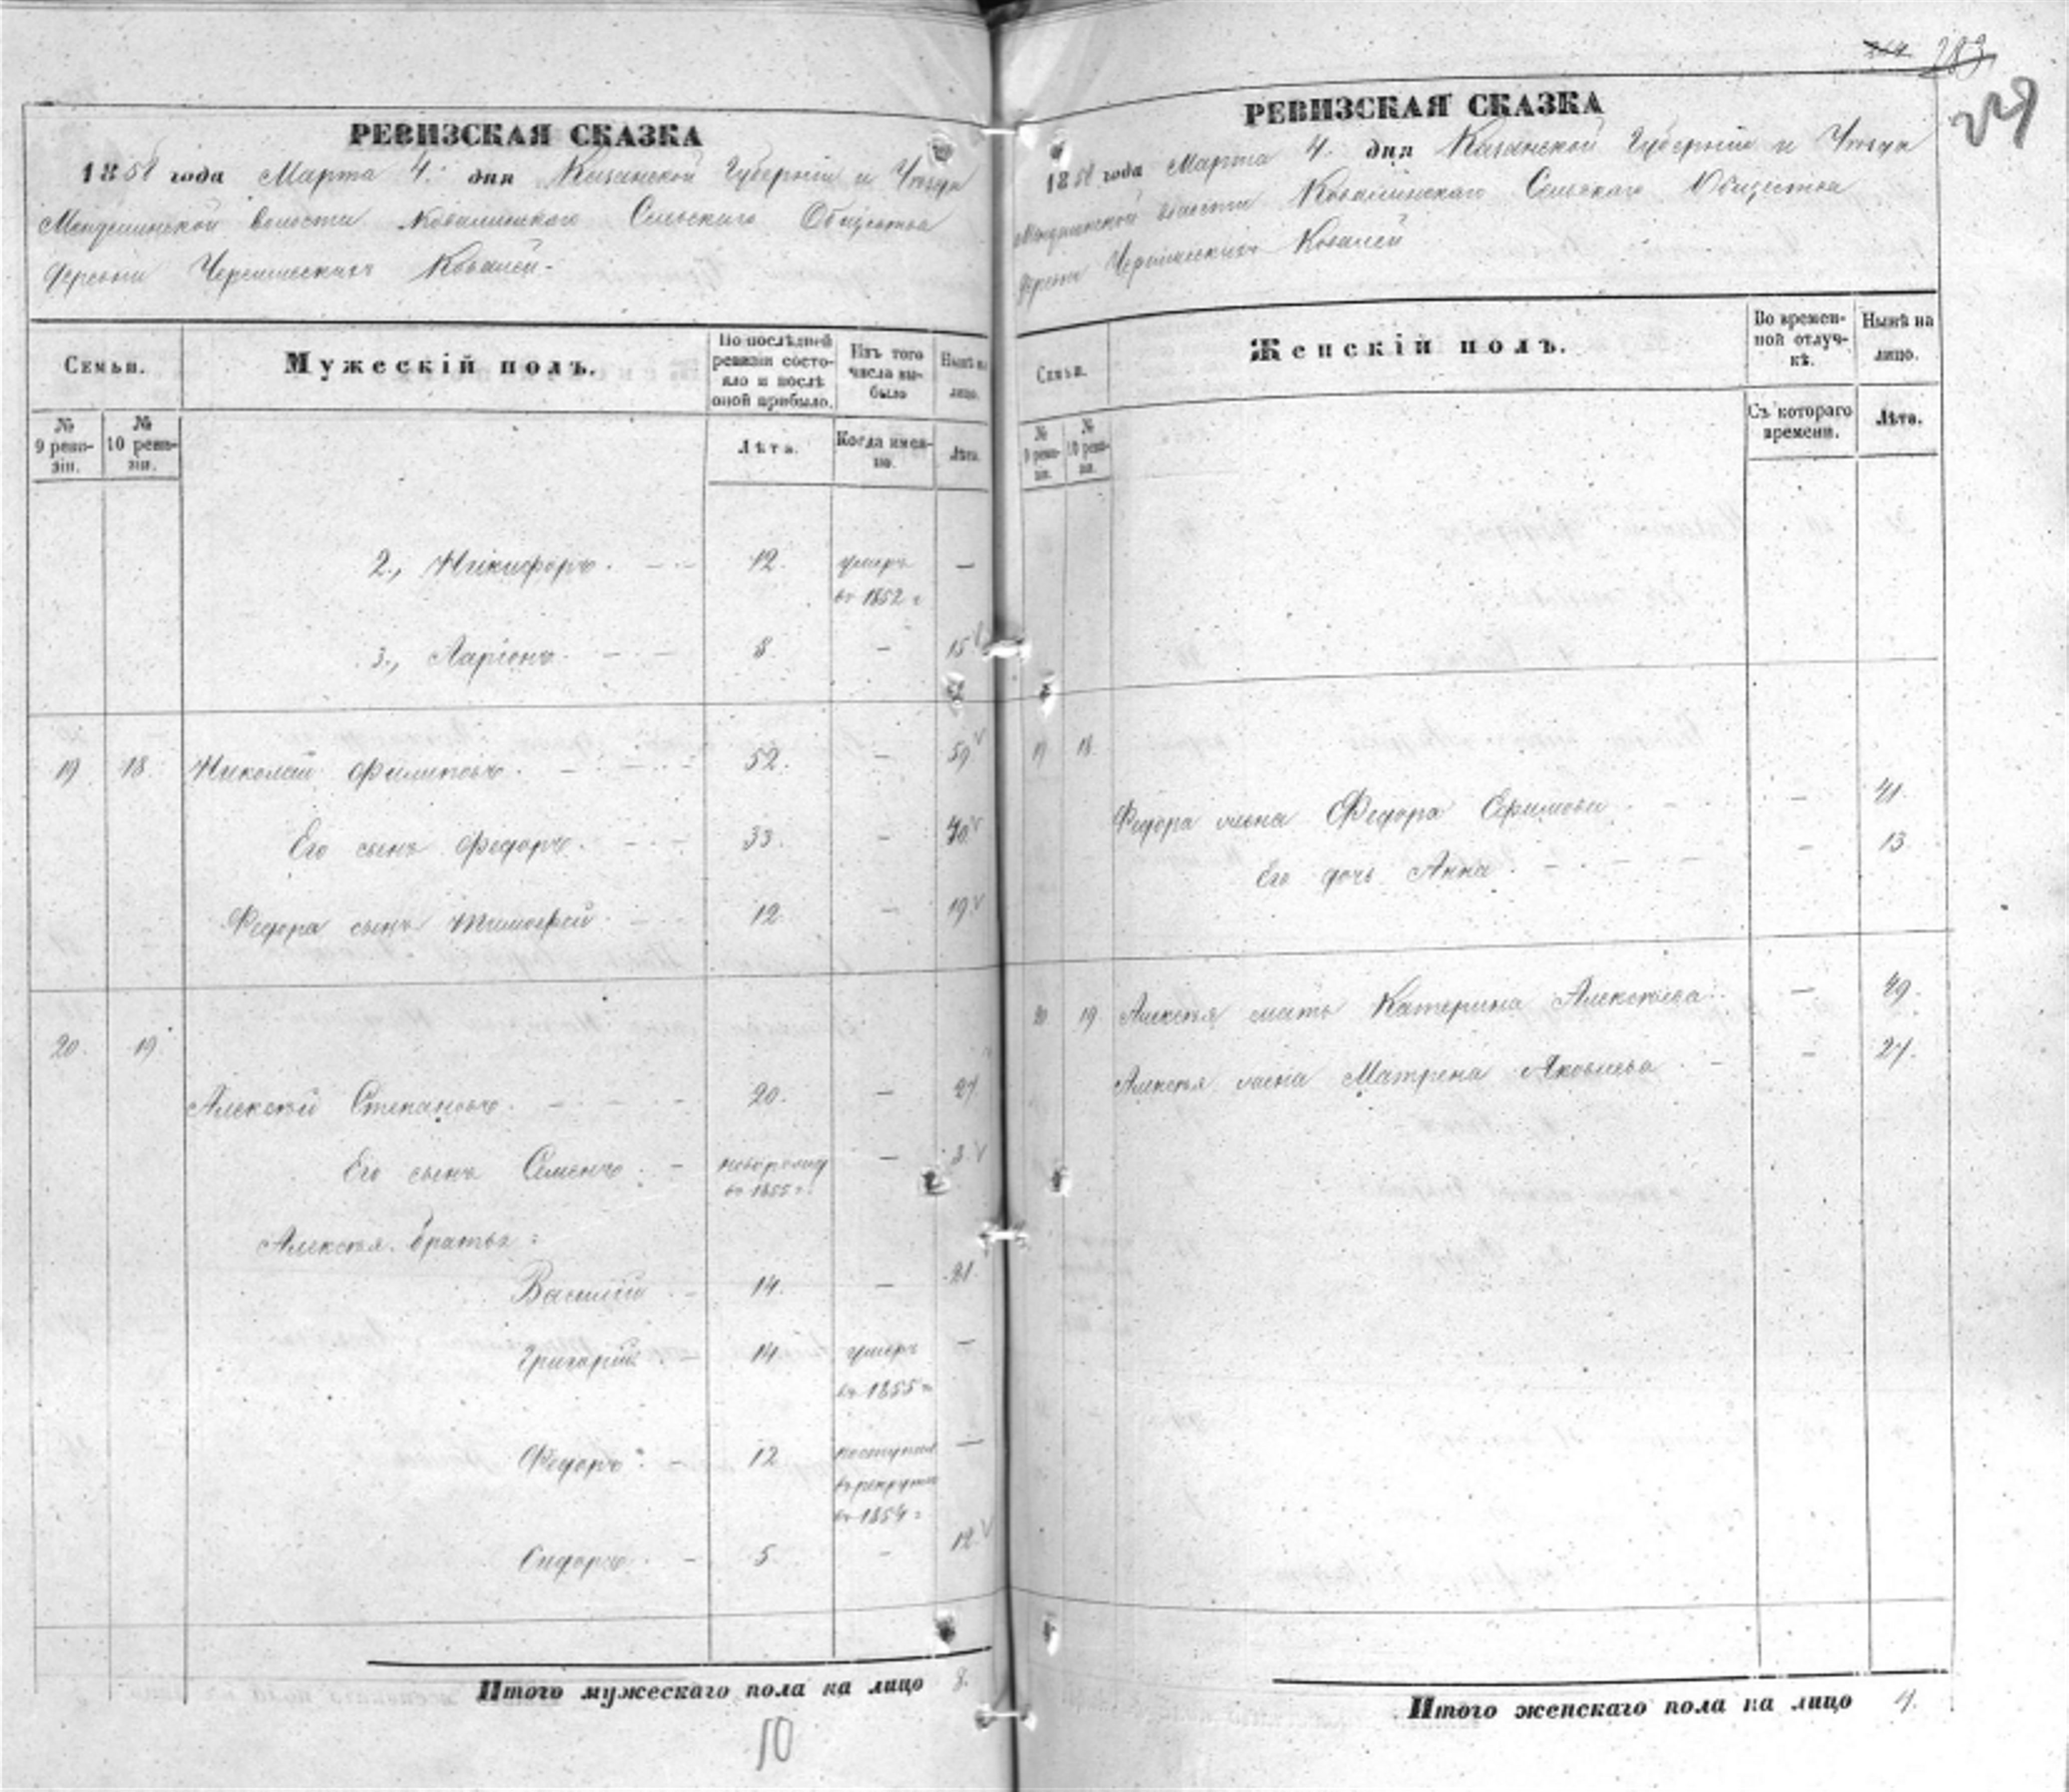 283
РЕВИЗСКАЯ СКАЗКА
1858 года Марта 4. дня Казанской Губерніи и Уѣзда
волости Ковалинскаго Сельскаго Общества
деревни Черемисскихъ Ковалей.
Семьи.
№ 9 ревизіи.
№ 10 ревизіи.
Мужескій полъ.
По послѣдней ревизіи состояло и послѣ оной прибыло.
Лѣта.
Изъ того числа выбыло
Когда именно.
Нынѣ на лицо.
Лѣта.
2., Никифоръ. 12. умеръ —
въ 1852 г
3., Ларіонъ. 8. — 15
19 18. Николай Филиповъ. 52. — 59
Его сынъ Федоръ. 33. — 40
Федора сынъ Тимофей. 12. — 19.
20. 19.
Алексѣй Степановъ. 20. — 27
Его сынъ Семенъ. новорожд — 3
въ 1855 г.
Алексѣя братья:
Василій 14. — 21.
Григорій 14. умеръ —
въ 1855 г
Федоръ 12 поступил —
в рекруты
въ 1854 г
Сидоръ. 5. — 12
Итого мужескаго пола на лицо 8.
10
РЕВИЗСКАЯ СКАЗКА
1858 года Марта 4. дня Казанской Губерніи и Уѣзда
волости Ковалинскаго Сельскаго Общества
деревни Черемисскихъ Ковалей
Семьи.
№ 9 ревизіи.
№ 10 ревизіи.
Женскій полъ.
Во временной отлучкѣ.
Съ котораго времени.
Нынѣ на лицо.
Лѣта.
19 18.
Федора жена Федора Ефимова. — 41.
Его дочь Анна. — 13
20 19. Алексѣя мать Катерина Алексѣева. — 49.
Алексѣя жена Матрена Яковлева — 27.
Итого женскаго пола на лицо 4.